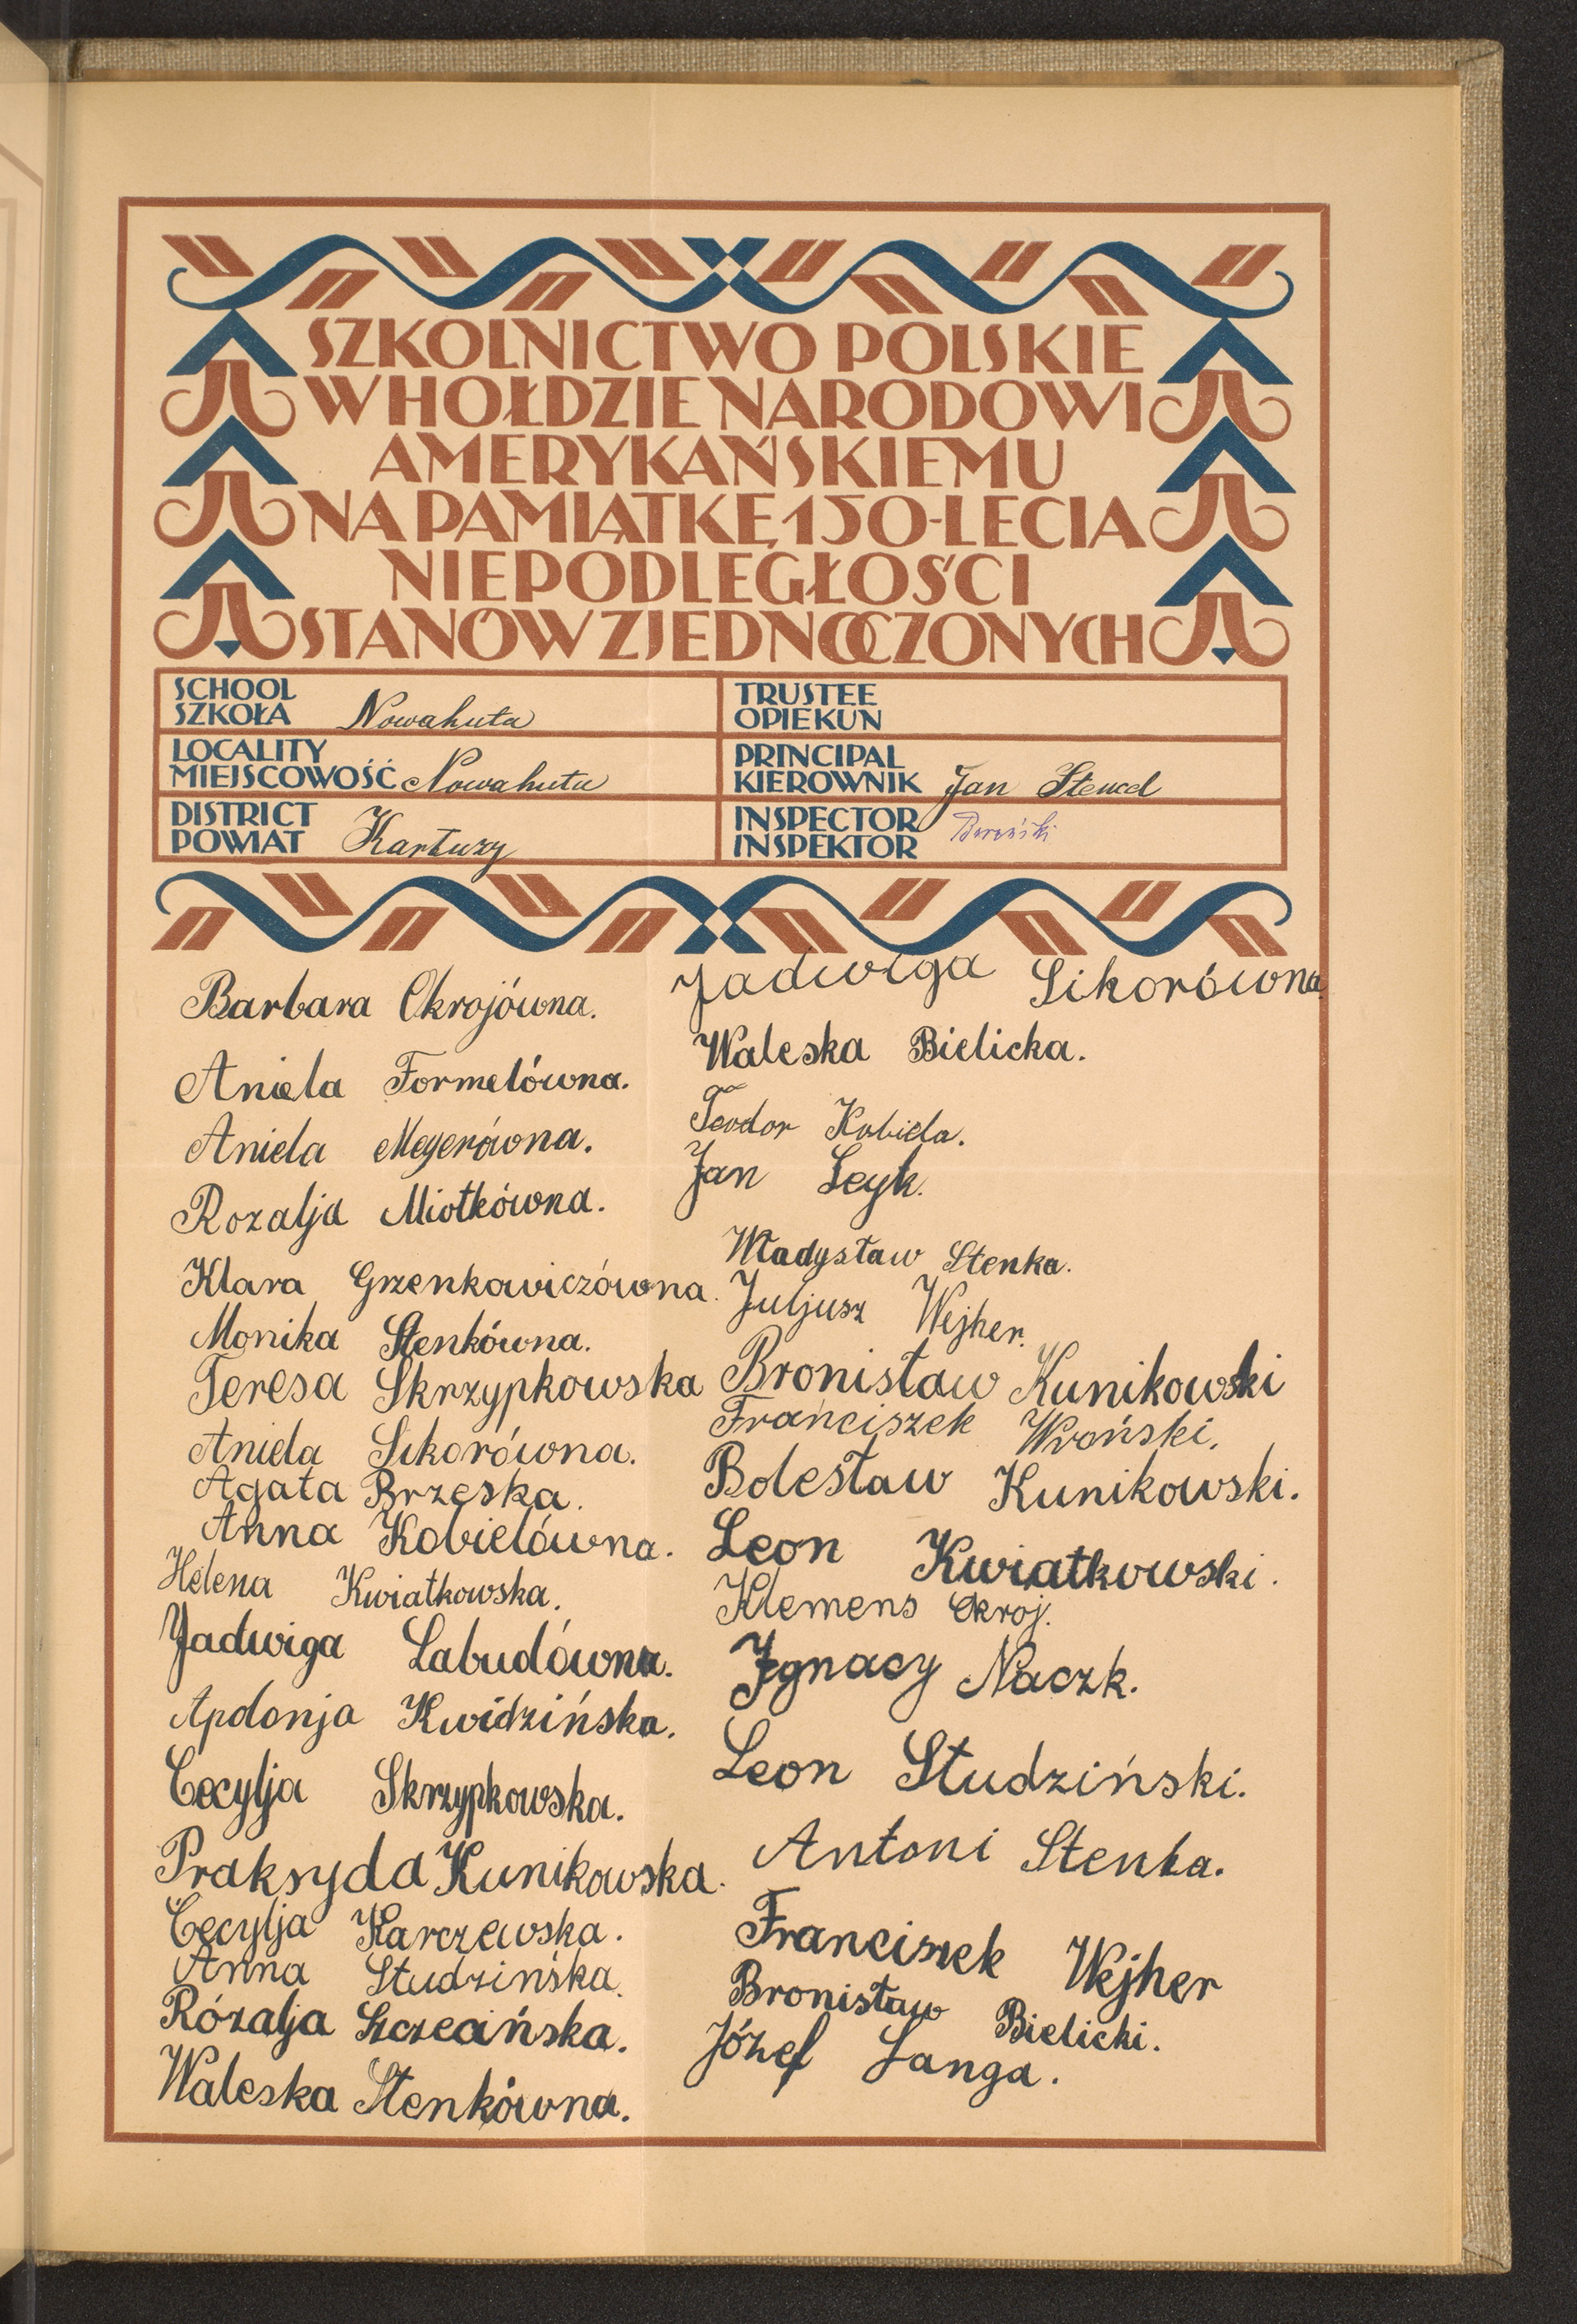 SZKOLNICTWO POLSKIE
W HOŁDZIE NARODOWI
AMERYKAŃSKIEMU
NA PAMIĄTKĘ 150-LECIA
NIEPODLEGŁOŚCI
STANÓW ZJEDNOCZONYCH
SCHOOL
SZKOŁA Nowahuta
LOCALITY
MIEJSCOWOŚĆ Nowahuta
DISTRICT
POWIAT Kartuzy
TRUSTEE
OPIEKUN
PRINCIPAL
KIEROWNIK Jan Stencel
INSPECTOR
INSPEKTOR
Barbara Okrojówna.
Aniela Formelówna.
Aniela Meyerówna.
Rozalja Miotkówna.
Klara Grzenkowiczówna.
Monika Stenkówna.
Teresa Skrzypkowska
Aniela Sikorówna.
Agata Brzeska.
Anna Kobielówna.
Helena Kwiatkowska.
Jadwiga Labudówna.
Apolonja Kwidzińska.
Cecylja Skrzypkowska.
Praksyda Kunikowska.
Cecylja Karczewska.
Anna Studzińska.
Rózalja Szczecińska.
Waleska Stenkówna.
Jadwiga Sikorówna
Waleska Bielicka.
Teodor Kobiela.
Jan Leyk.
Władysław Stenka.
Juljusz Wejher.
Bronisław Kunikowski
Franciszek Wroński.
Bolesław Kunikowski.
Leon Kwiatkowski.
Klemens Okroj.
Ignacy Naczk.
Leon Studziński.
Antoni Stenka.
Franciszek Wejher
Bronisław Bielicki.
Józef Langa.